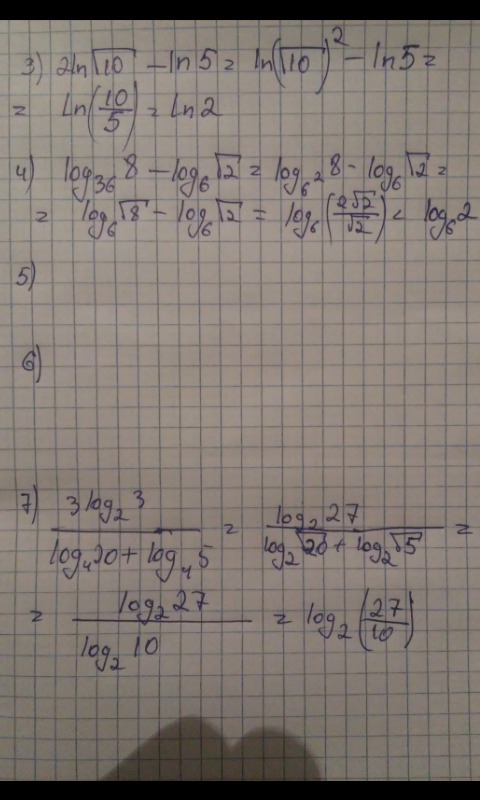 3) 2ln√10 − ln5 = ln(√10)² − ln5 =
= ln(10/5) = ln2
4) log₃₆ 8 − log₆ √2 = log₆² 8 − log₆ √2 =
= log₆ √8 − log₆ √2 = log₆ (2√2/√2) = log₆ 2
5)
6)
7) 3 log₂ 3 / (log₄ 20 + log₄ 5) = log₂ 27 / (log₂ √20 + log₂ √5) =
= log₂ 27 / log₂ 10 = log₂ (27/10)